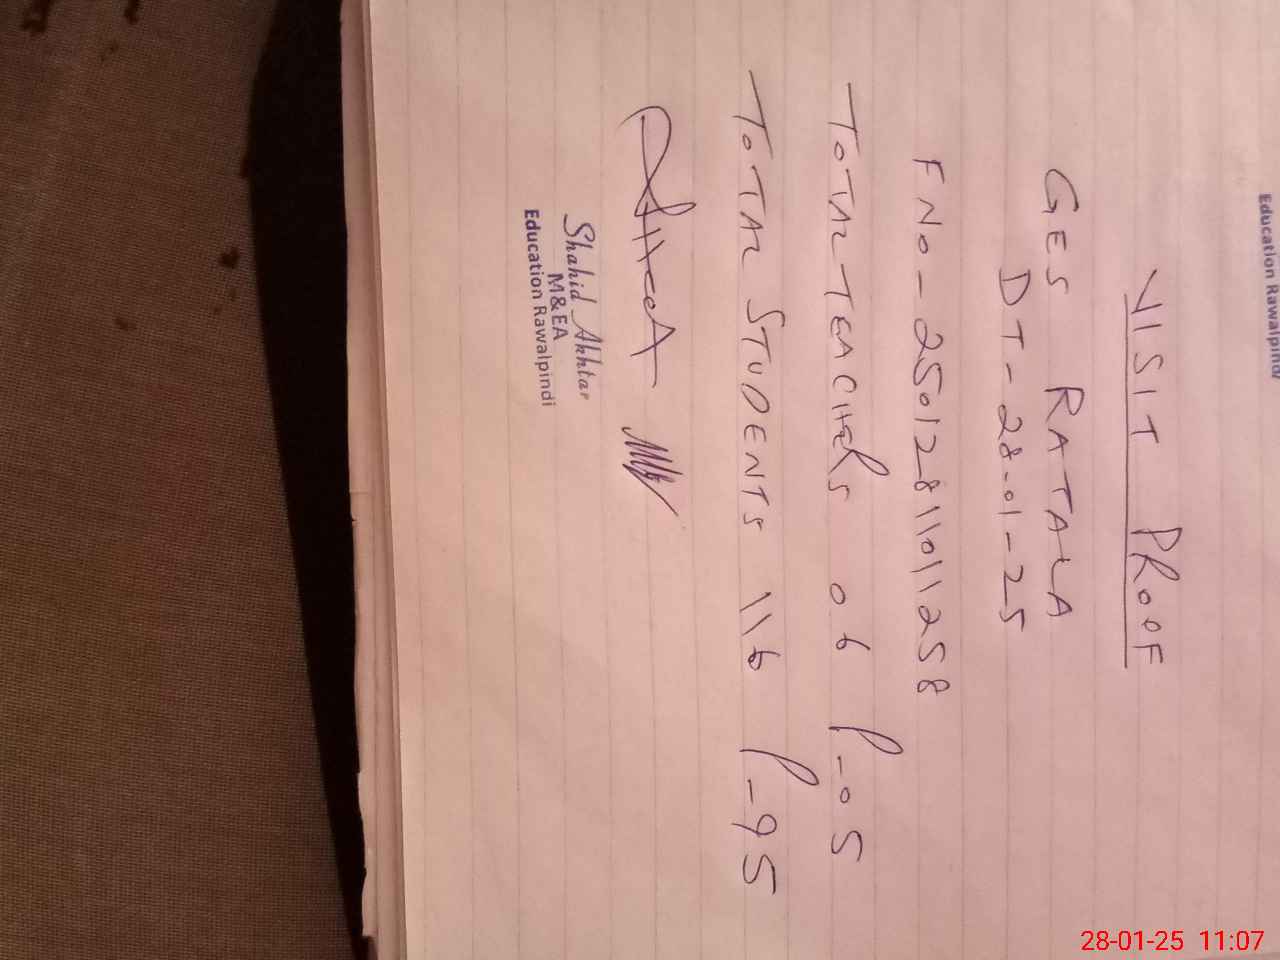 Education Rawalpindi
VISIT PROOF
GES RATALA
DT-28-01-25
FNO-25012811011258
TOTAL TEACHERS 06 P-05
TOTAL STUDENTS 116 P-95
Shahid Akhtar
M&EA
Education Rawalpindi
28-01-25 11:07